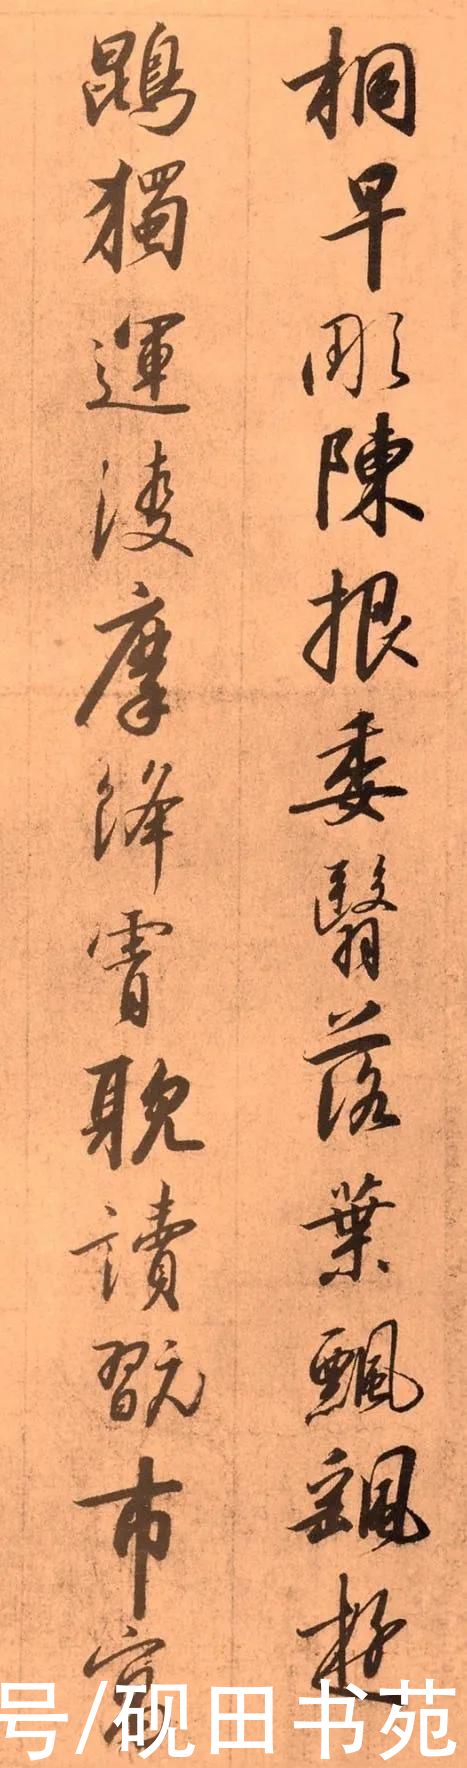 桐早彫陳根委翳落葉飄飖遊
鵾獨運淩摩降霄耽讀翫市寓
号/砚田书苑